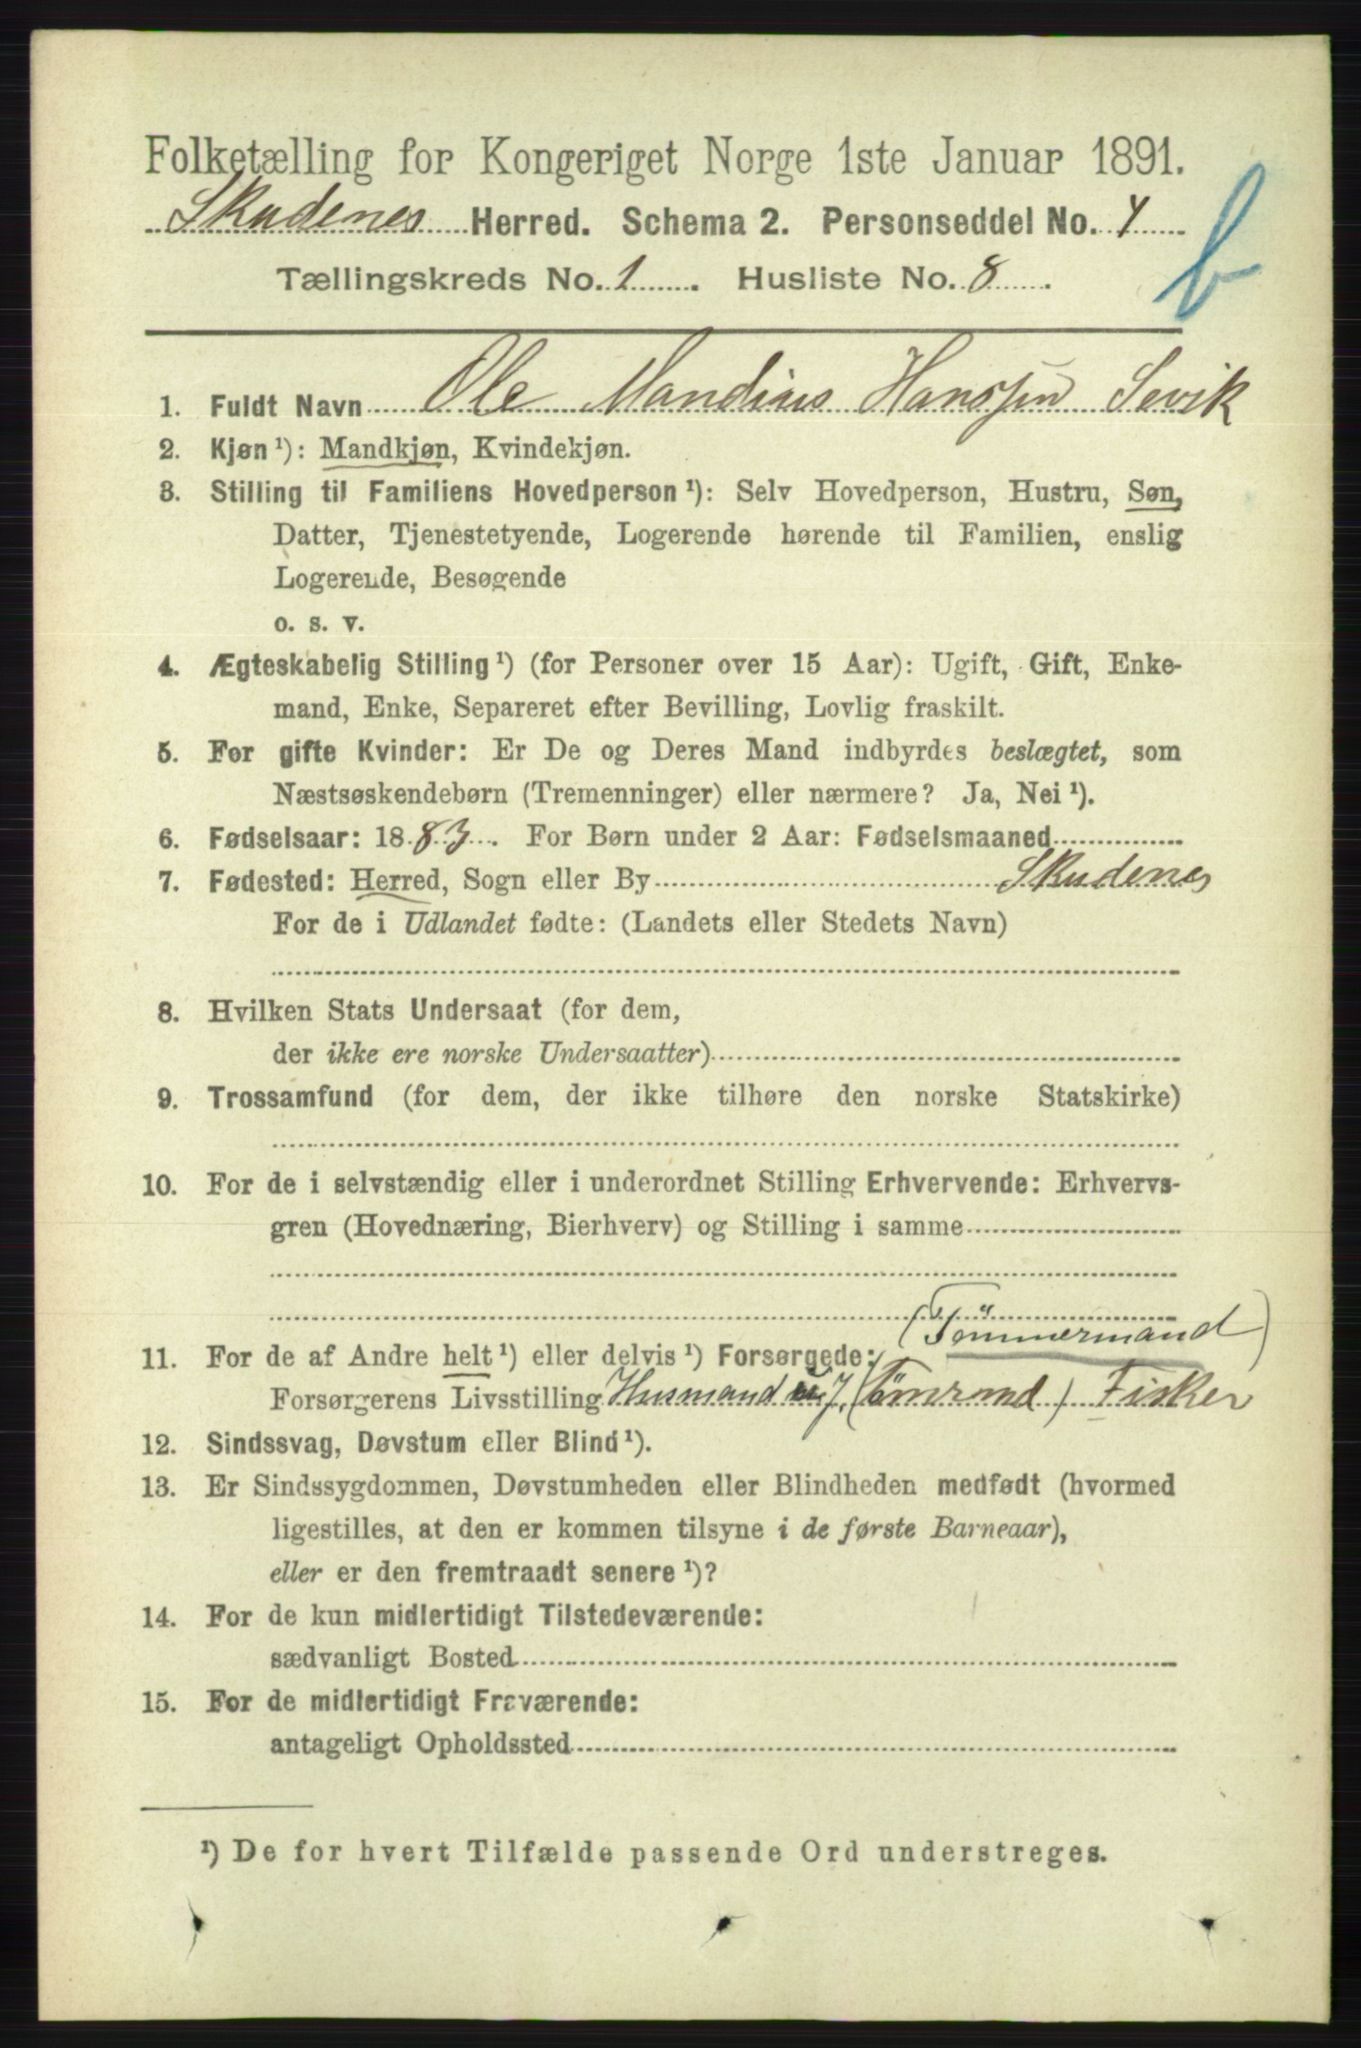 Folketælling for Kongeriget Norge 1ste Januar 1891.
Skudenes Herred. Schema 2. Personseddel No. 4
b
Tællingskreds No. 1. Husliste No. 8.
1. Fuldt Navn Ole Mandius Hanssen Sevik
2. Kjøn ¹): Mandkjøn, Kvindekjøn.
3. Stilling til Familiens Hovedperson ¹): Selv Hovedperson, Hustru, Søn,
Datter, Tjenestetyende, Logerende hørende til Familien, enslig
Logerende, Besøgende
o. s. v.
4. Ægteskabelig Stilling ¹) (for Personer over 15 Aar): Ugift, Gift, Enke-
mand, Enke, Separeret efter Bevilling, Lovlig fraskilt.
5. For gifte Kvinder: Er De og Deres Mand indbyrdes beslægtet, som
Næstsøskendebørn (Tremenninger) eller nærmere? Ja, Nei ¹).
6. Fødselsaar: 1883. For Børn under 2 Aar: Fødselsmaaned
7. Fødested: Herred, Sogn eller By Skudenes
For de i Udlandet fødte: (Landets eller Stedets Navn)
8. Hvilken Stats Undersaat (for dem,
der ikke ere norske Undersaatter)
9. Trossamfund (for dem, der ikke tilhøre den norske Statskirke)
10. For de i selvstændig eller i underordnet Stilling Erhvervende: Erhvervs-
gren (Hovednæring, Bierhverv) og Stilling i samme
(Tömmermand)
11. For de af Andre helt ¹) eller delvis ¹) Forsørgede:
Forsørgerens Livsstilling Husmand u J. (Tömrmd) Fisker
12. Sindssvag, Døvstum eller Blind ¹).
13. Er Sindssygdommen, Døvstumheden eller Blindheden medfødt (hvormed
ligestilles, at den er kommen tilsyne i de første Barneaar),
eller er den fremtraadt senere ¹)?
14. For de kun midlertidigt Tilstedeværende:
sædvanligt Bosted
15. For de midlertidigt Fraværende:
antageligt Opholdssted
¹) De for hvert Tilfælde passende Ord understreges.